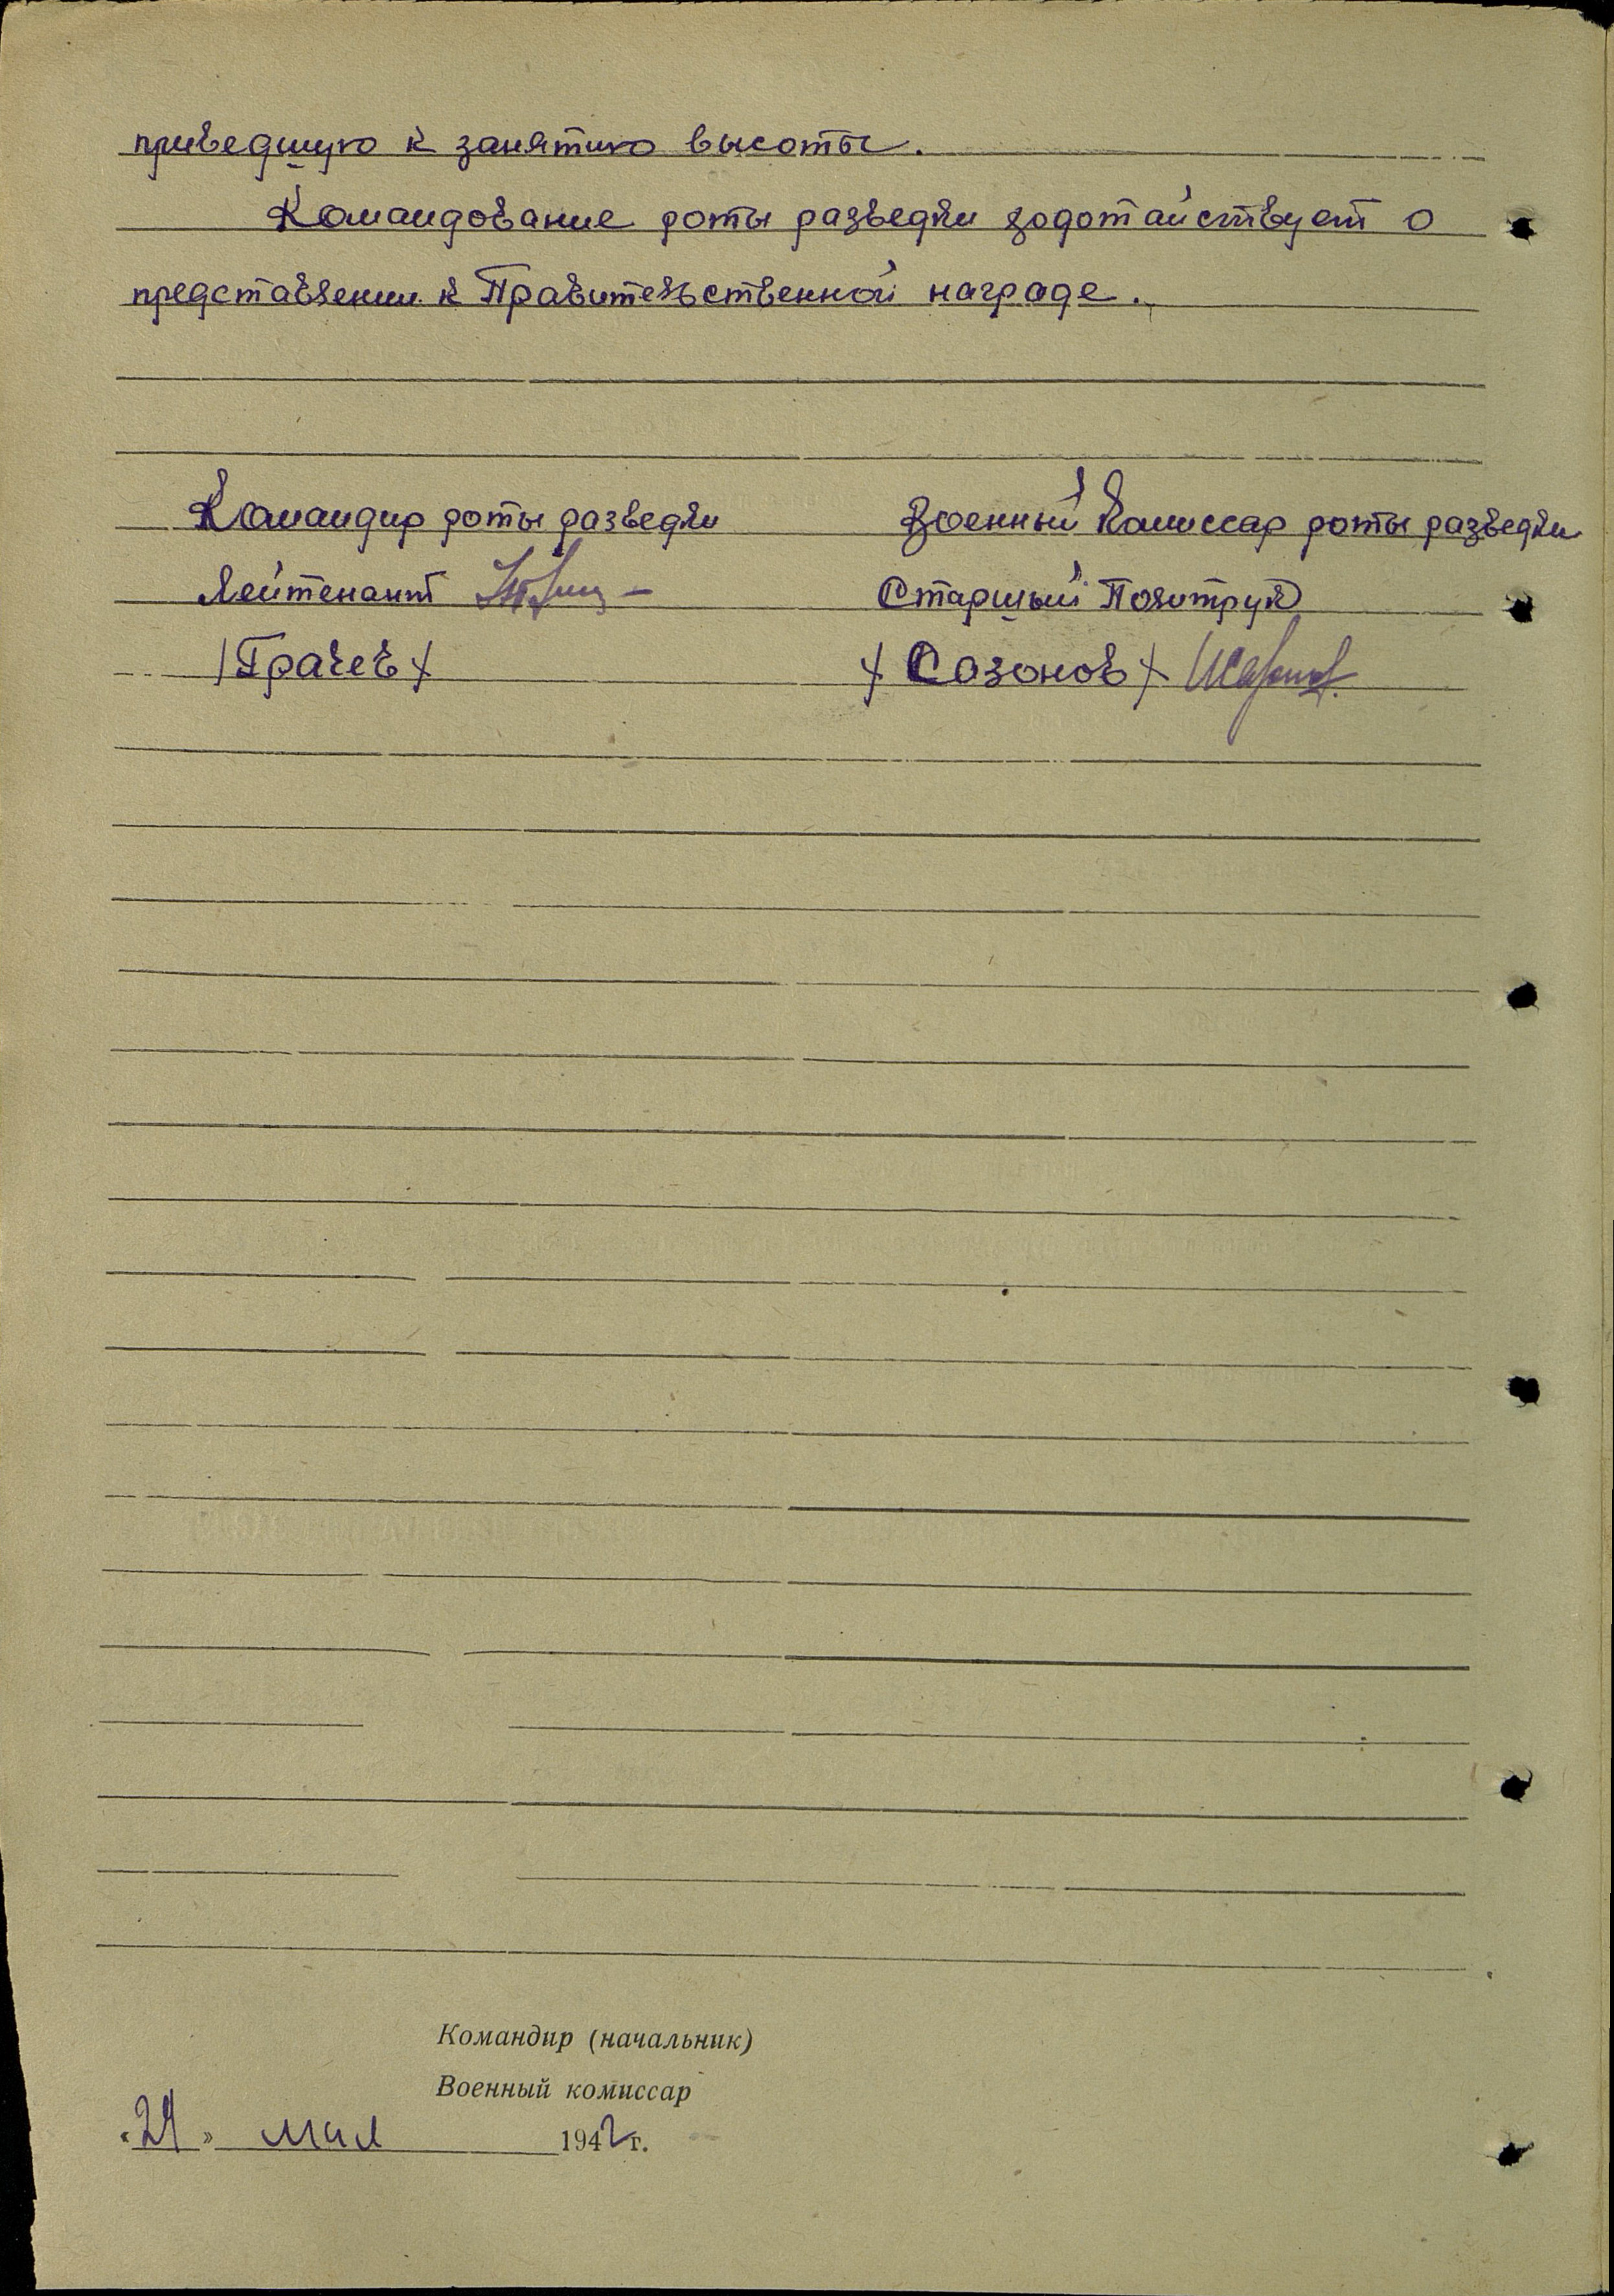 приведшую к занятию высоты.
Командование роты разведки ходотайствует о
представлении к Правительственной награде.
Командир роты разведки Военный Комиссар роты разведки
Лейтенант Старший Политрук
/Грачев/ / Сазонов /
Командир (начальник)
Военный комиссар
« » мая 1942 г.